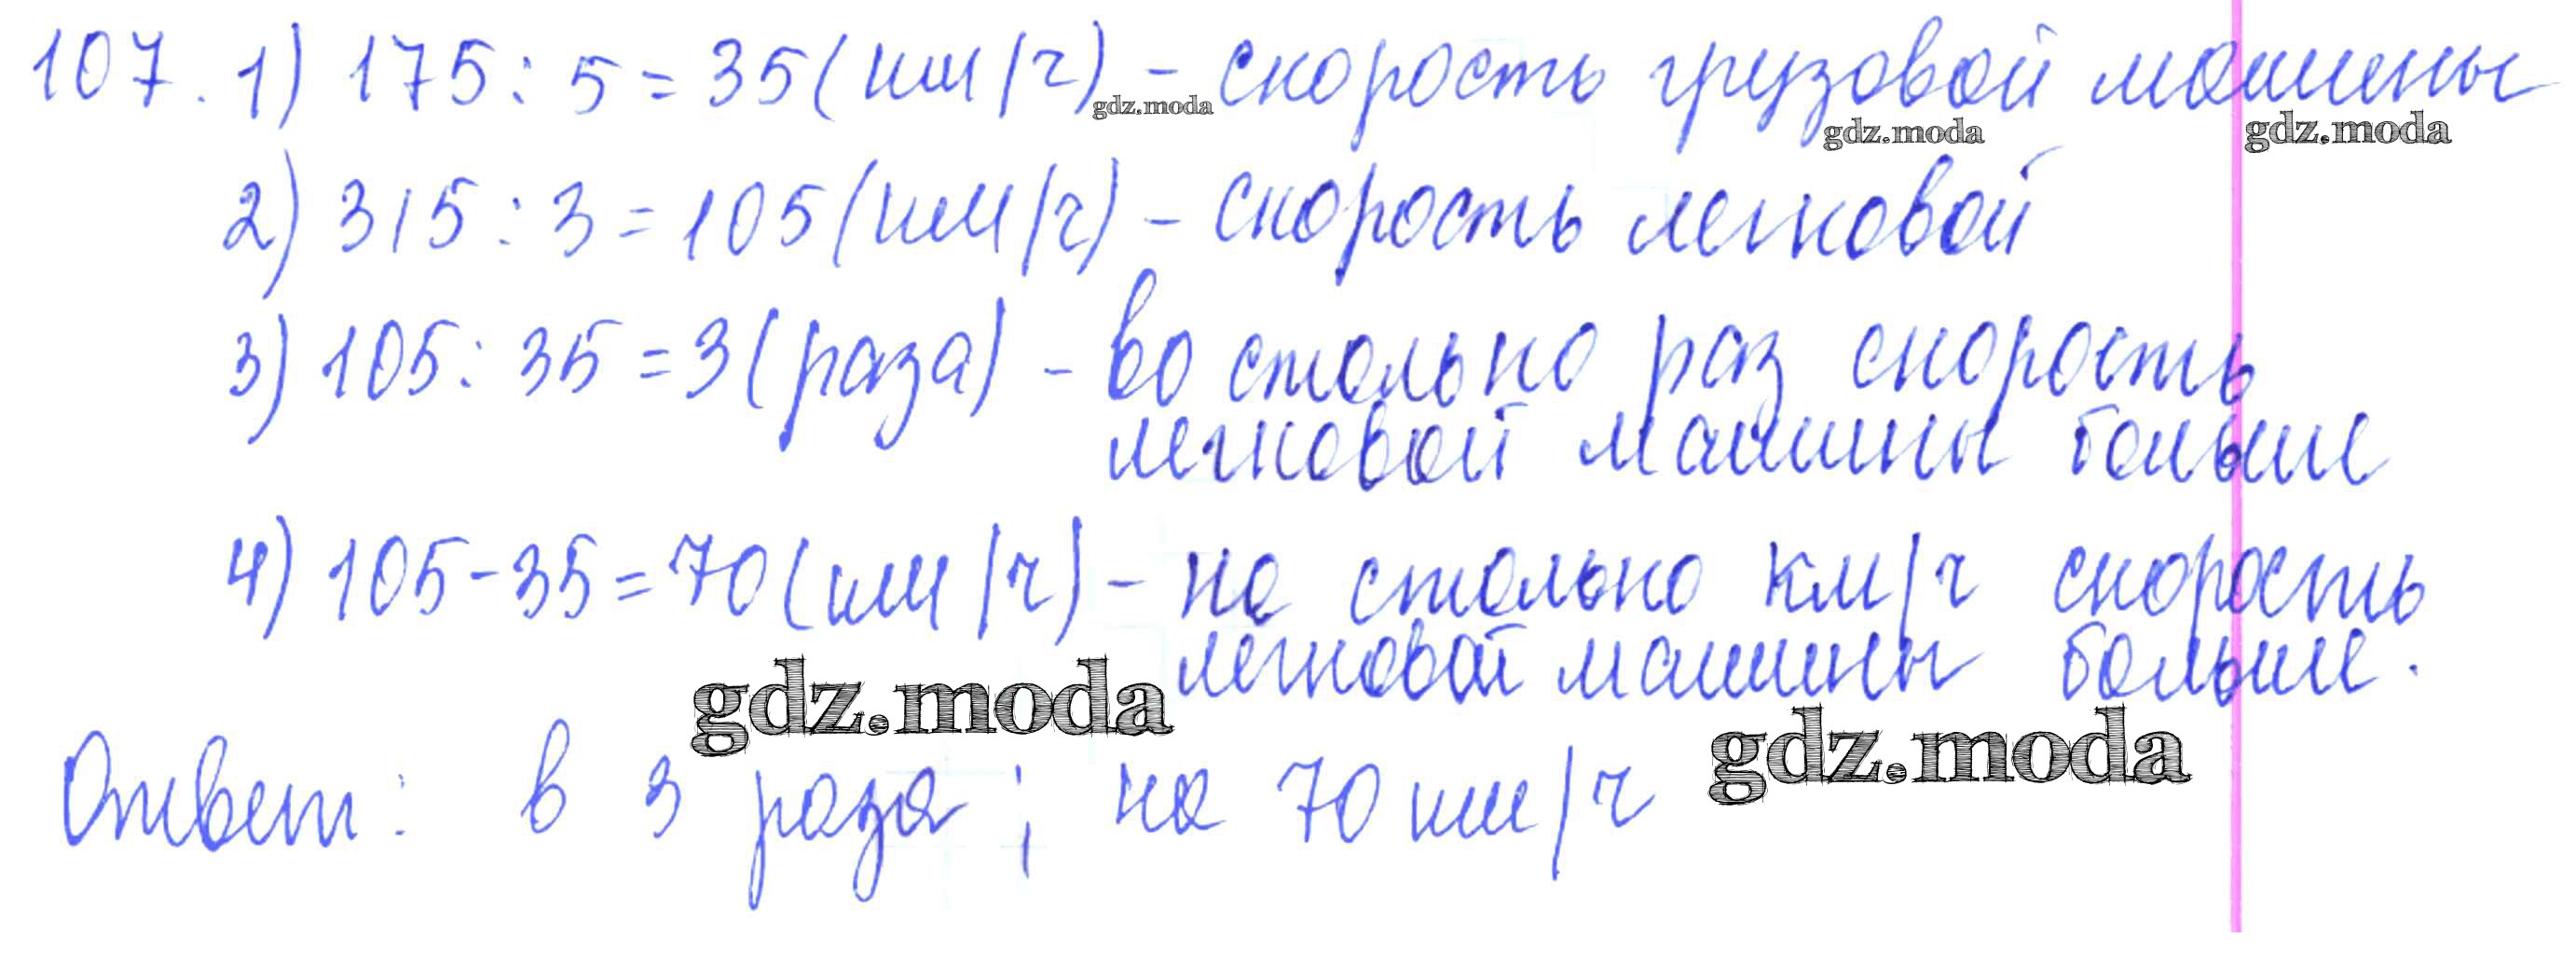 107. 1) 175 : 5 = 35 (км/ч) - скорость грузовой машины
gdz.moda
gdz.moda
gdz.moda
2) 315 : 3 = 105 (км/ч) - скорость легковой
3) 105 : 35 = 3 (раза) - во столько раз скорость
легковой машины больше
4) 105 - 35 = 70 (км/ч) - на столько км/ч скорость
легковой машины больше.
gdz.moda
gdz.moda
Ответ: в 3 раза; на 70 км/ч